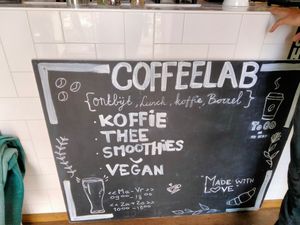 COFFEELAB
{ontbijt, Lunch, koffie, Borrel}
KOFFIE
THEE
SMOOTHIES
VEGAN
<<Ma-Vr>>
<<Za+Zo>>
MADE WITH
LOVE